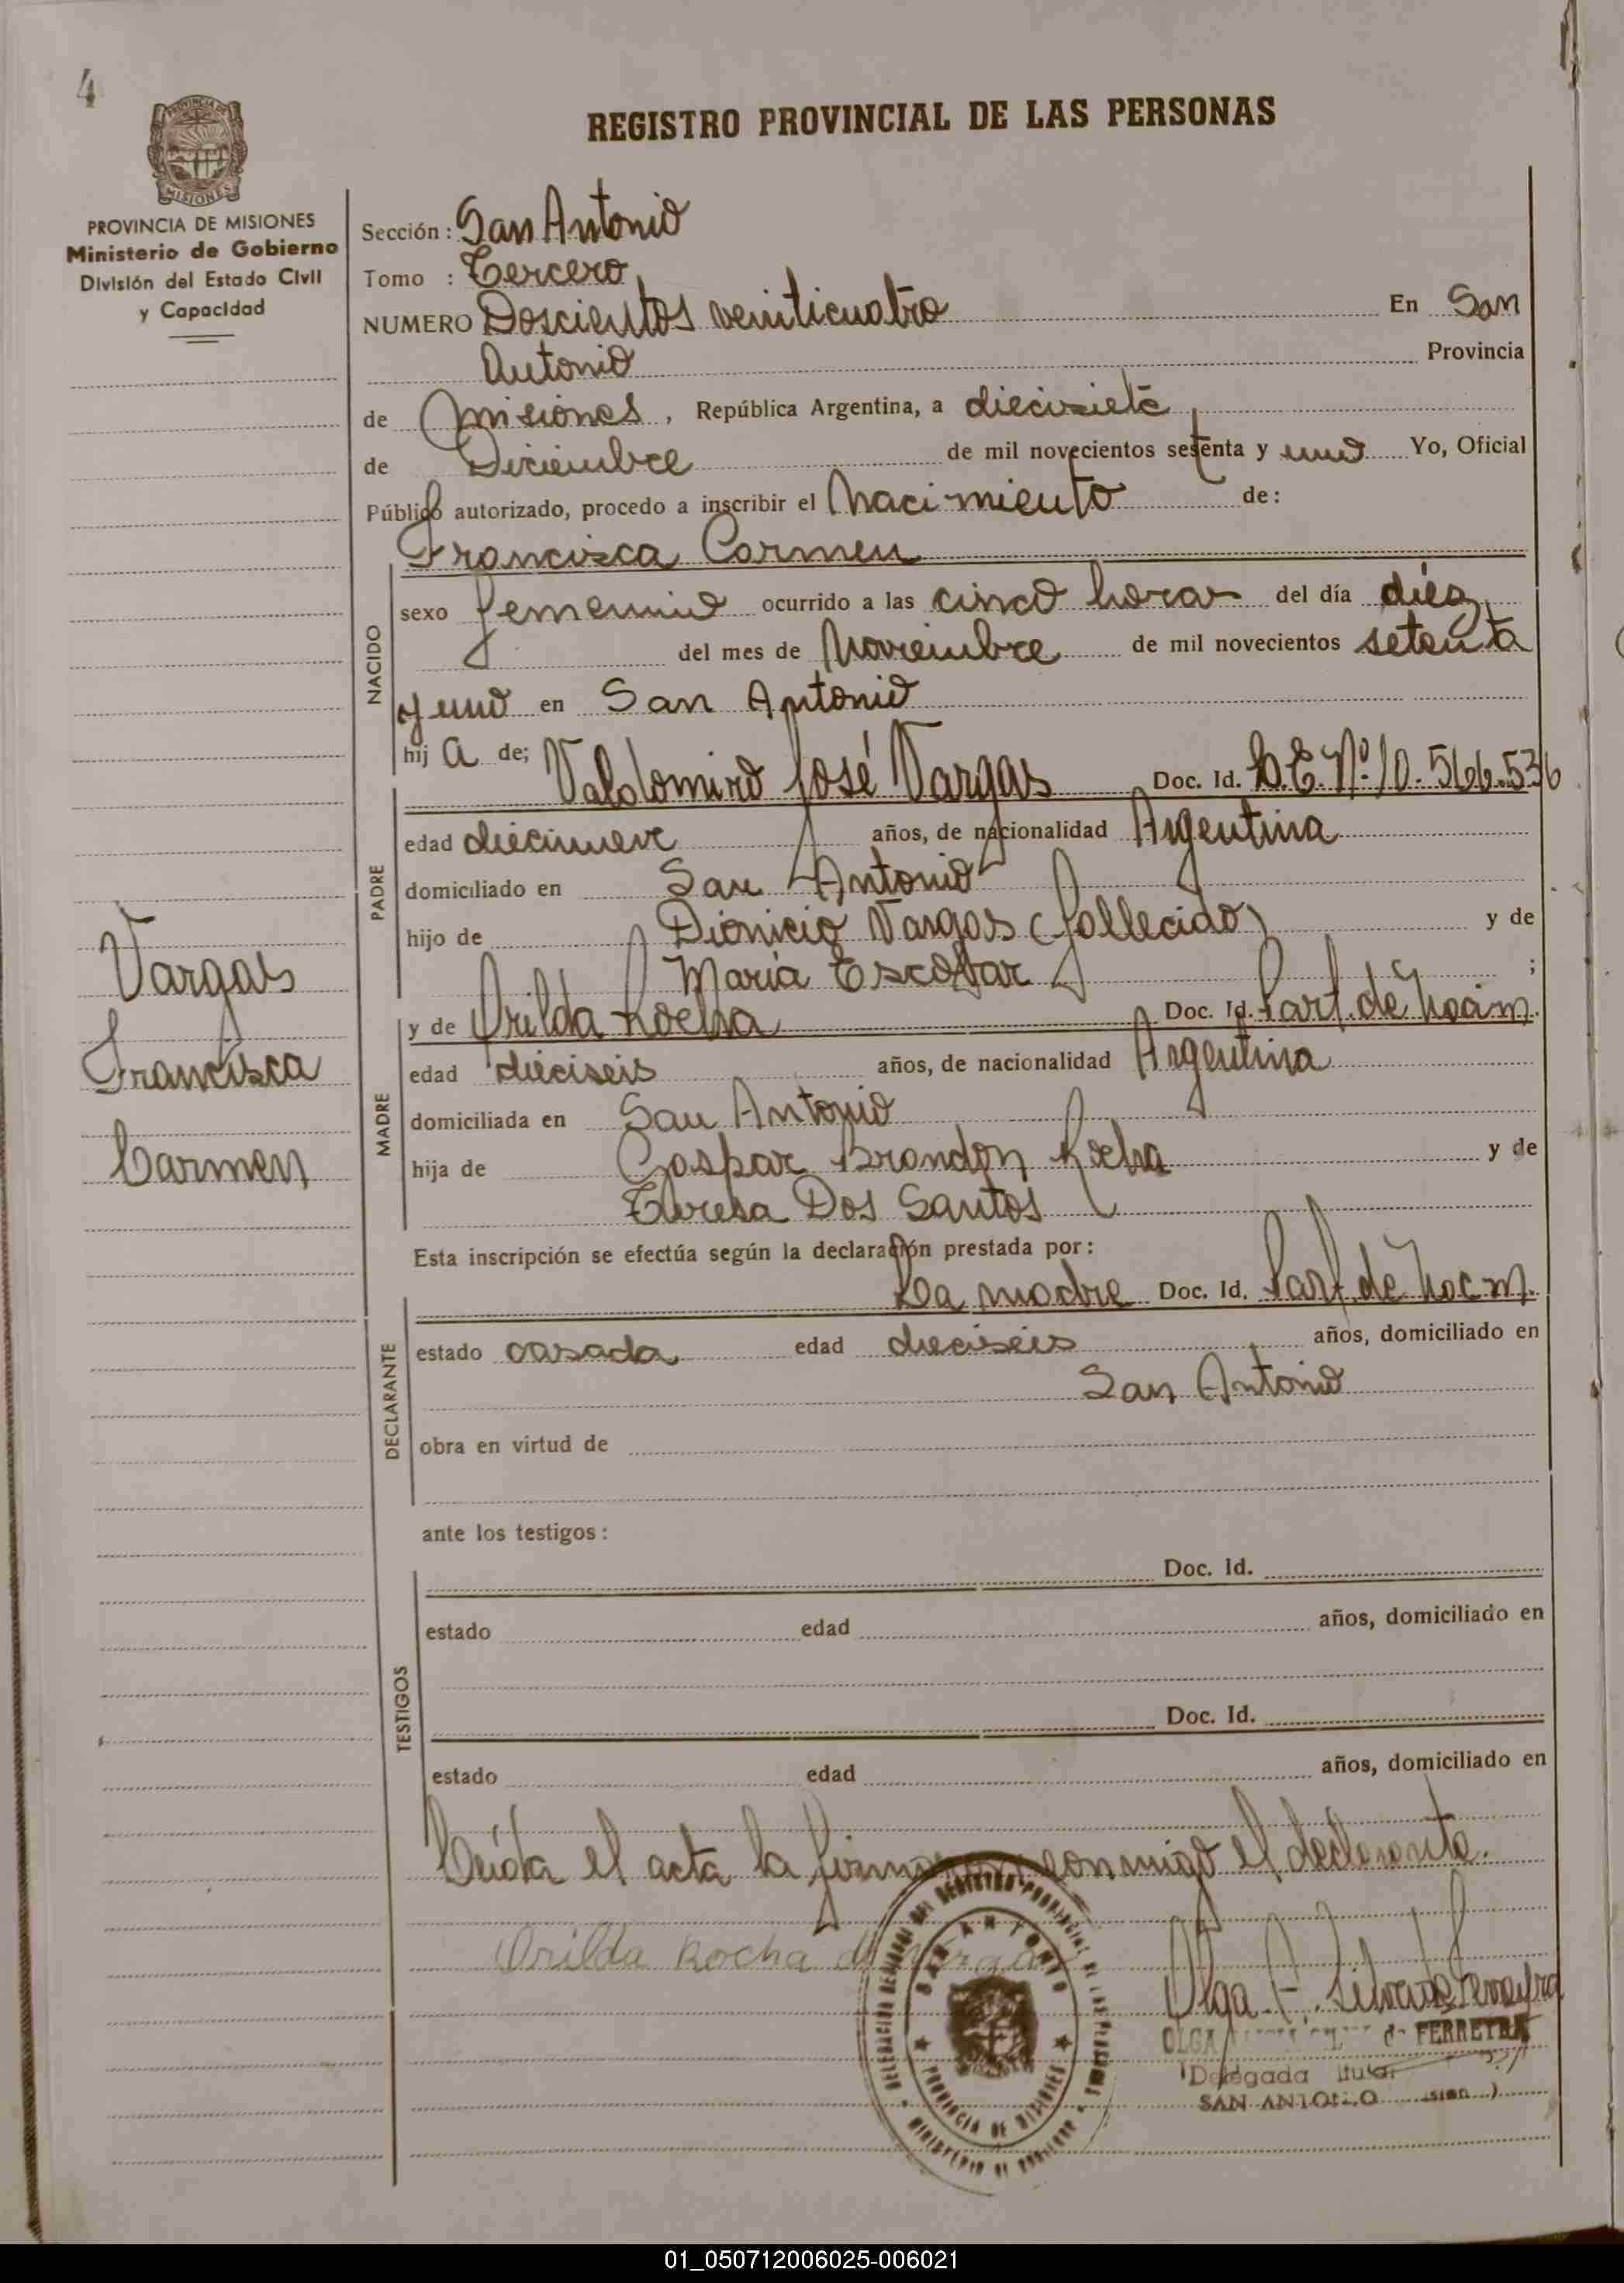 4
PROVINCIA DE MISIONES
Ministerio de Gobierno
División del Estado Civil
y Capacidad
REGISTRO PROVINCIAL DE LAS PERSONAS
Sección: San Antonio
Tomo : Tercero
NUMERO Doscientos veinticuatro En San
Antonio Provincia
de Misiones, República Argentina, a diecisiete
de Diciembre de mil novecientos setenta y uno Yo, Oficial
Público autorizado, procedo a inscribir el Nacimiento de:
Francisca Carmen
NACIDO
sexo femenino ocurrido a las cinco horas del día diez
del mes de Noviembre de mil novecientos setenta
y uno en San Antonio
hij a de; Valdomiro José Vargas Doc. Id. D.E. Nº 10.566.536
PADRE
edad diecinueve años, de nacionalidad Argentina
domiciliado en San Antonio
hijo de Dionicio Vargas (fallecido) y de
María Escobar ;
y de Orilda Rocha Doc. Id. Part. de Nacim.
MADRE
edad dieciseis años, de nacionalidad Argentina
domiciliada en San Antonio
hija de Gaspar Brandon Rocha y de
Teresa Dos Santos
Esta inscripción se efectúa según la declaración prestada por:
La madre Doc. Id. Part. de Nacim.
DECLARANTE
estado casada edad dieciseis años, domiciliado en
San Antonio
obra en virtud de
ante los testigos:
Doc. Id.
TESTIGOS
estado edad años, domiciliado en
Doc. Id.
estado edad años, domiciliado en
Leída el acta la firma conmigo el declarante.
Orilda Rocha de Vargas
Vargas
Francisca
Carmen
DELEGACION REGISTRO PROVINCIAL DE LAS PERSONAS
SAN ANTONIO
PROVINCIA DE MISIONES
MINISTERIO DE GOBIERNO
Olga Ferreyra
OLGA de FERREYRA
Delegada Titular
SAN ANTONIO
01_050712006025-006021